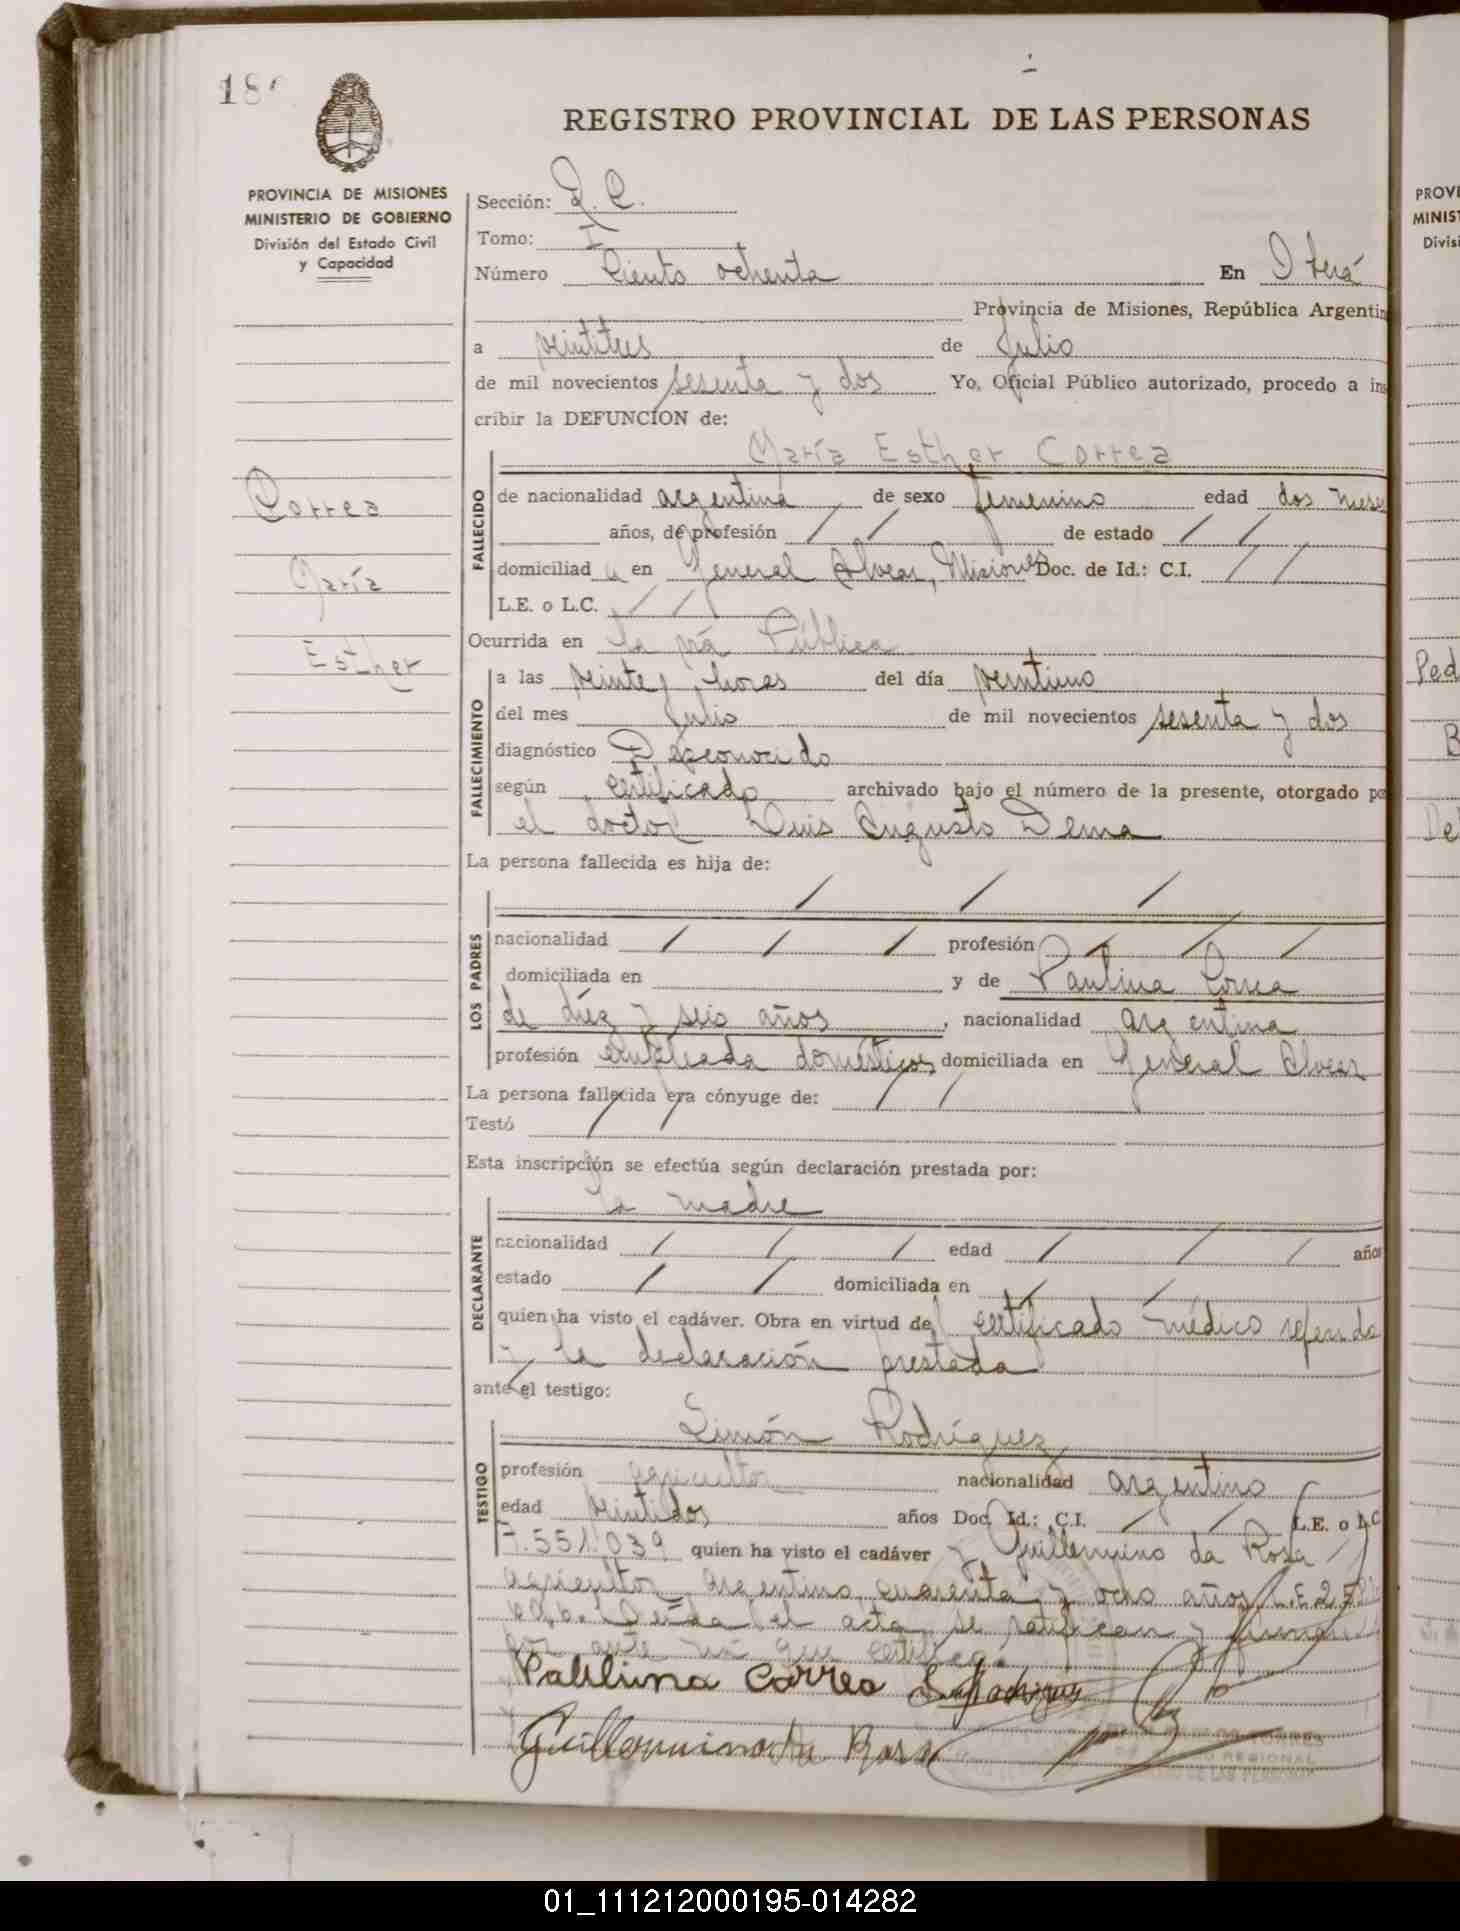 18
REGISTRO PROVINCIAL DE LAS PERSONAS
PROVINCIA DE MISIONES
MINISTERIO DE GOBIERNO
División del Estado Civil
y Capacidad
Correa
María
Esther
Sección:
Tomo: I
Número Ciento ochenta En Oberá
Provincia de Misiones, República Argentin
a veintitres de Julio
de mil novecientos sesenta y dos Yo, Oficial Público autorizado, procedo a ins
cribir la DEFUNCION de:
María Esther Correa
FALLECIDO
de nacionalidad argentina de sexo femenino edad dos mese
años, de profesión / / de estado / /
domiciliad a en General Alvear, Misiones Doc. de Id.: C.I. / /
L.E. o L.C. / /
Ocurrida en la vía Pública
FALLECIMIENTO
a las veinte horas del día veintiuno
del mes Julio de mil novecientos sesenta y dos
diagnóstico Desconocido
según certificado archivado bajo el número de la presente, otorgado po
el doctor Luis Augusto Dema
La persona fallecida es hija de:
/ / /
LOS PADRES
nacionalidad / / / profesión / / /
domiciliada en y de Paulina Correa
de diez y seis años, nacionalidad argentina
profesión empleada domésticos, domiciliada en General Alvear
La persona fallecida era cónyuge de: / /
Testó / /
Esta inscripción se efectúa según declaración prestada por:
la madre
DECLARANTE
nacionalidad / / / edad / / / años
estado / / domiciliada en / /
quien ha visto el cadáver. Obra en virtud del certificado médico referido
y la declaración prestada
ante el testigo:
Simón Rodríguez
TESTIGO
profesión agricultor nacionalidad argentino
edad veintidos años Doc. Id.: C.I. / / L.E. o L.C
7.551.039 quien ha visto el cadáver y Guillermino da Rosa
agricultor argentino cuarenta y ocho años, L.E. 2.
Leída el acta, se ratifican y firman
por ante mí que certifico.
Paulina Correa S. Rodriguez
Guillermino da Rosa
REGIONAL
DE LAS PERSONAS
PROVI
MINIST
Divisi
Ped
B
De
01_111212000195-014282